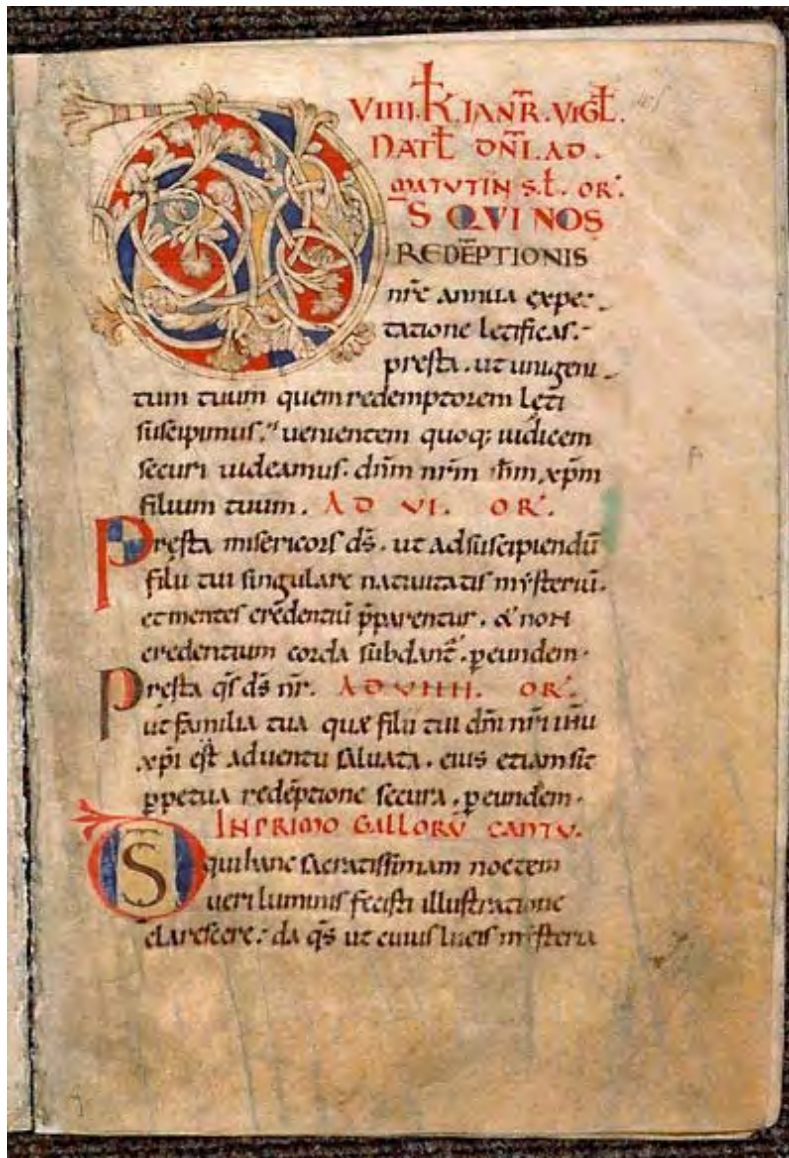 VIIII. K. IANR̄. VIGꝉ.
NATꝉ DN̄I. AD.
MATVTIN. S.ꝉ. OR'.
D̄S QVI NOS
REDĒPTIONIS
nr̄ę annua expec-
tatione letificas.
presta. ut unigeni-
tum tuum quem redemptorem lęti
suscipimus. uenientem quoq; iudicem
securi uideamus. dn̄m nr̄m ihm̄ xp̄m
filium tuum. AD VI. OR'.
Presta misericors ds̄. ut ad suscipiendū
filii tui singulare natiuitatis mẏsteriū.
et mentes credentiū p̄parentur. & non
credentium corda subdant᷑. ꝑ eundem.
Presta qs̄ ds̄ nr̄. AD VIIII. OR'.
ut familia tua quę filii tui dn̄i nr̄i ihū
xp̄i est aduentu saluata. eius etiam sit
ꝑpetua redēptione secura. ꝑ eundem.
IN PRIMO GALLORŪ CANTV.
D̄S qui hanc sacratissimam noctem
ueri luminis fecisti illustratione
clarescere. da qs̄ ut cuius lucis mẏsteria